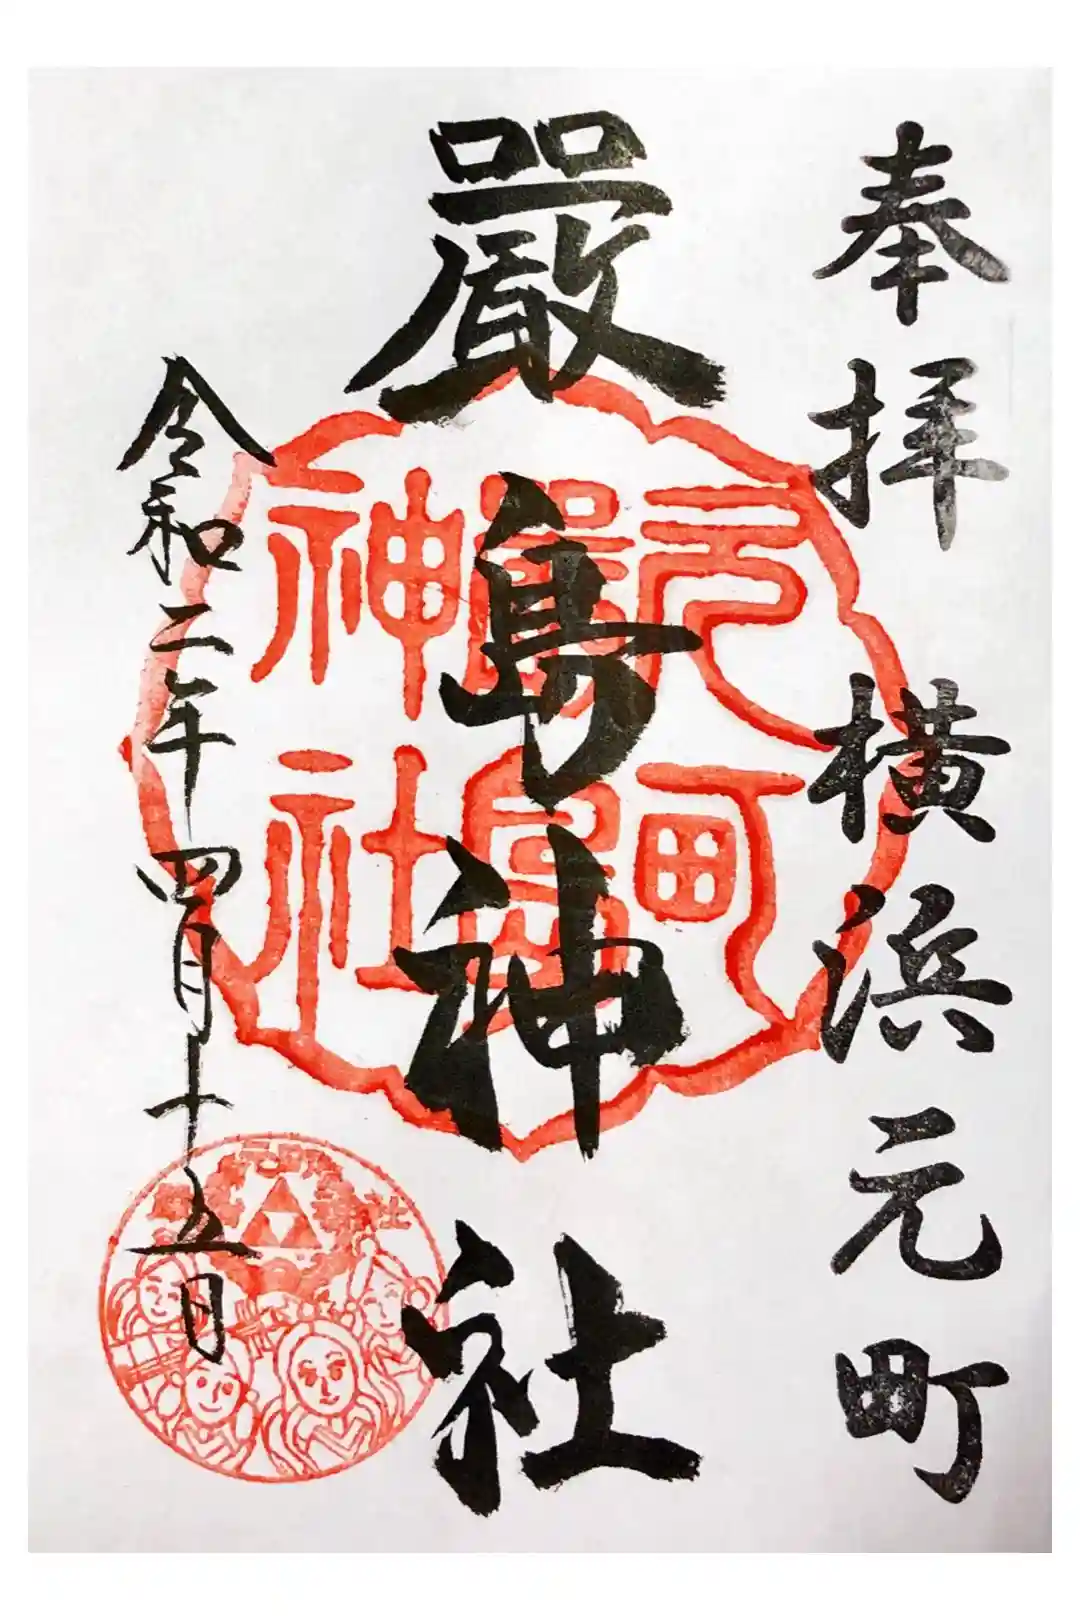 奉拝 横浜元町
嚴島神社
元町
嚴島
神社
令和二年四月十五日